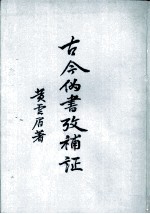 古今伪书考补证
黄云眉著